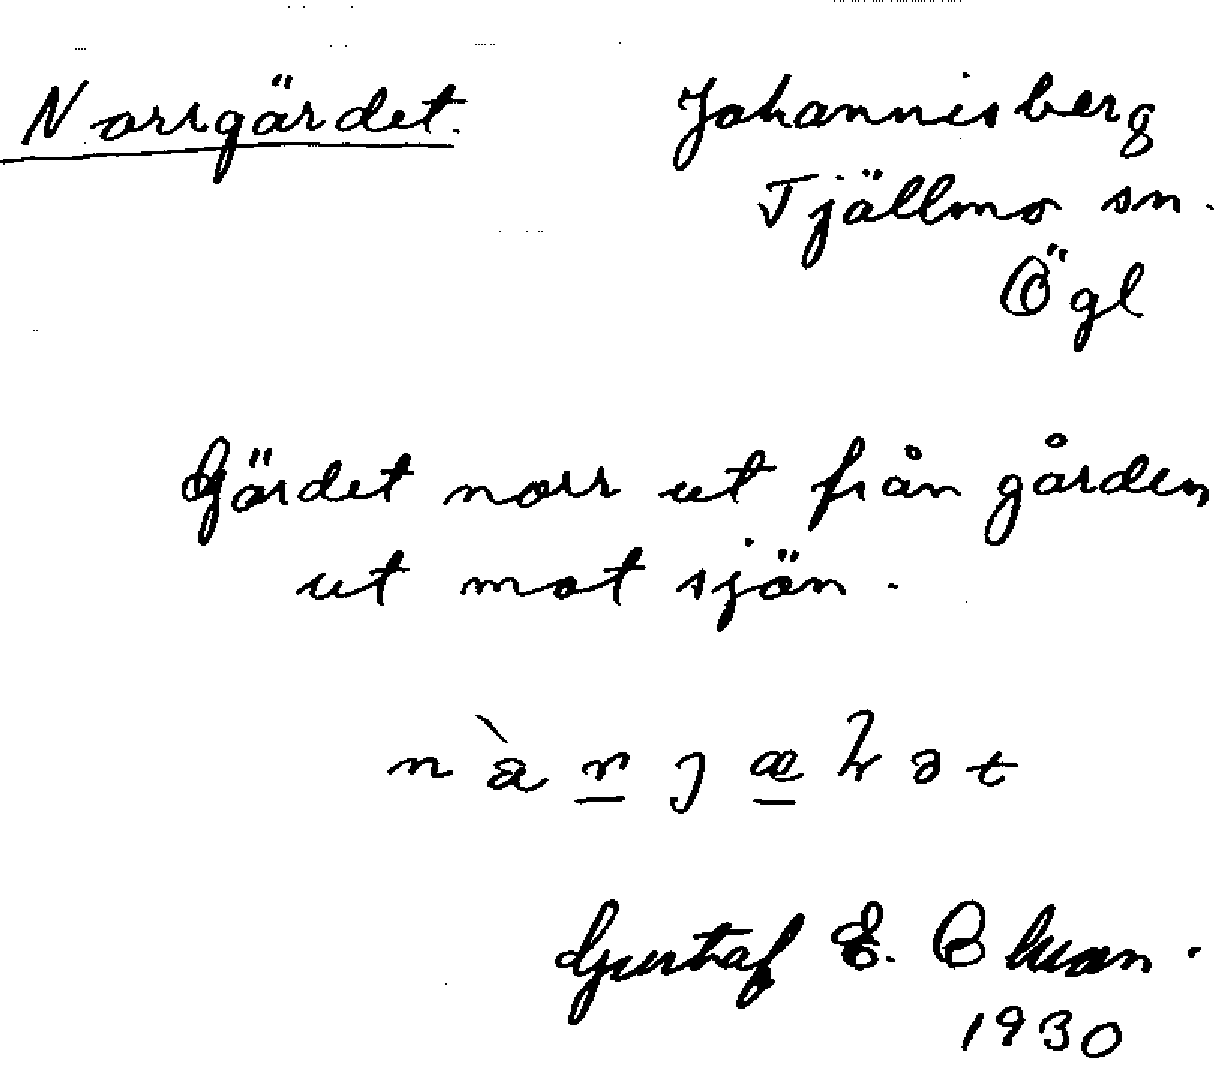 Norrgärdet.
Johannisberg
Tjällmo sn.
Ögl
Gärdet norr ut från gården
ut mot sjön.
Gustaf E.
1930